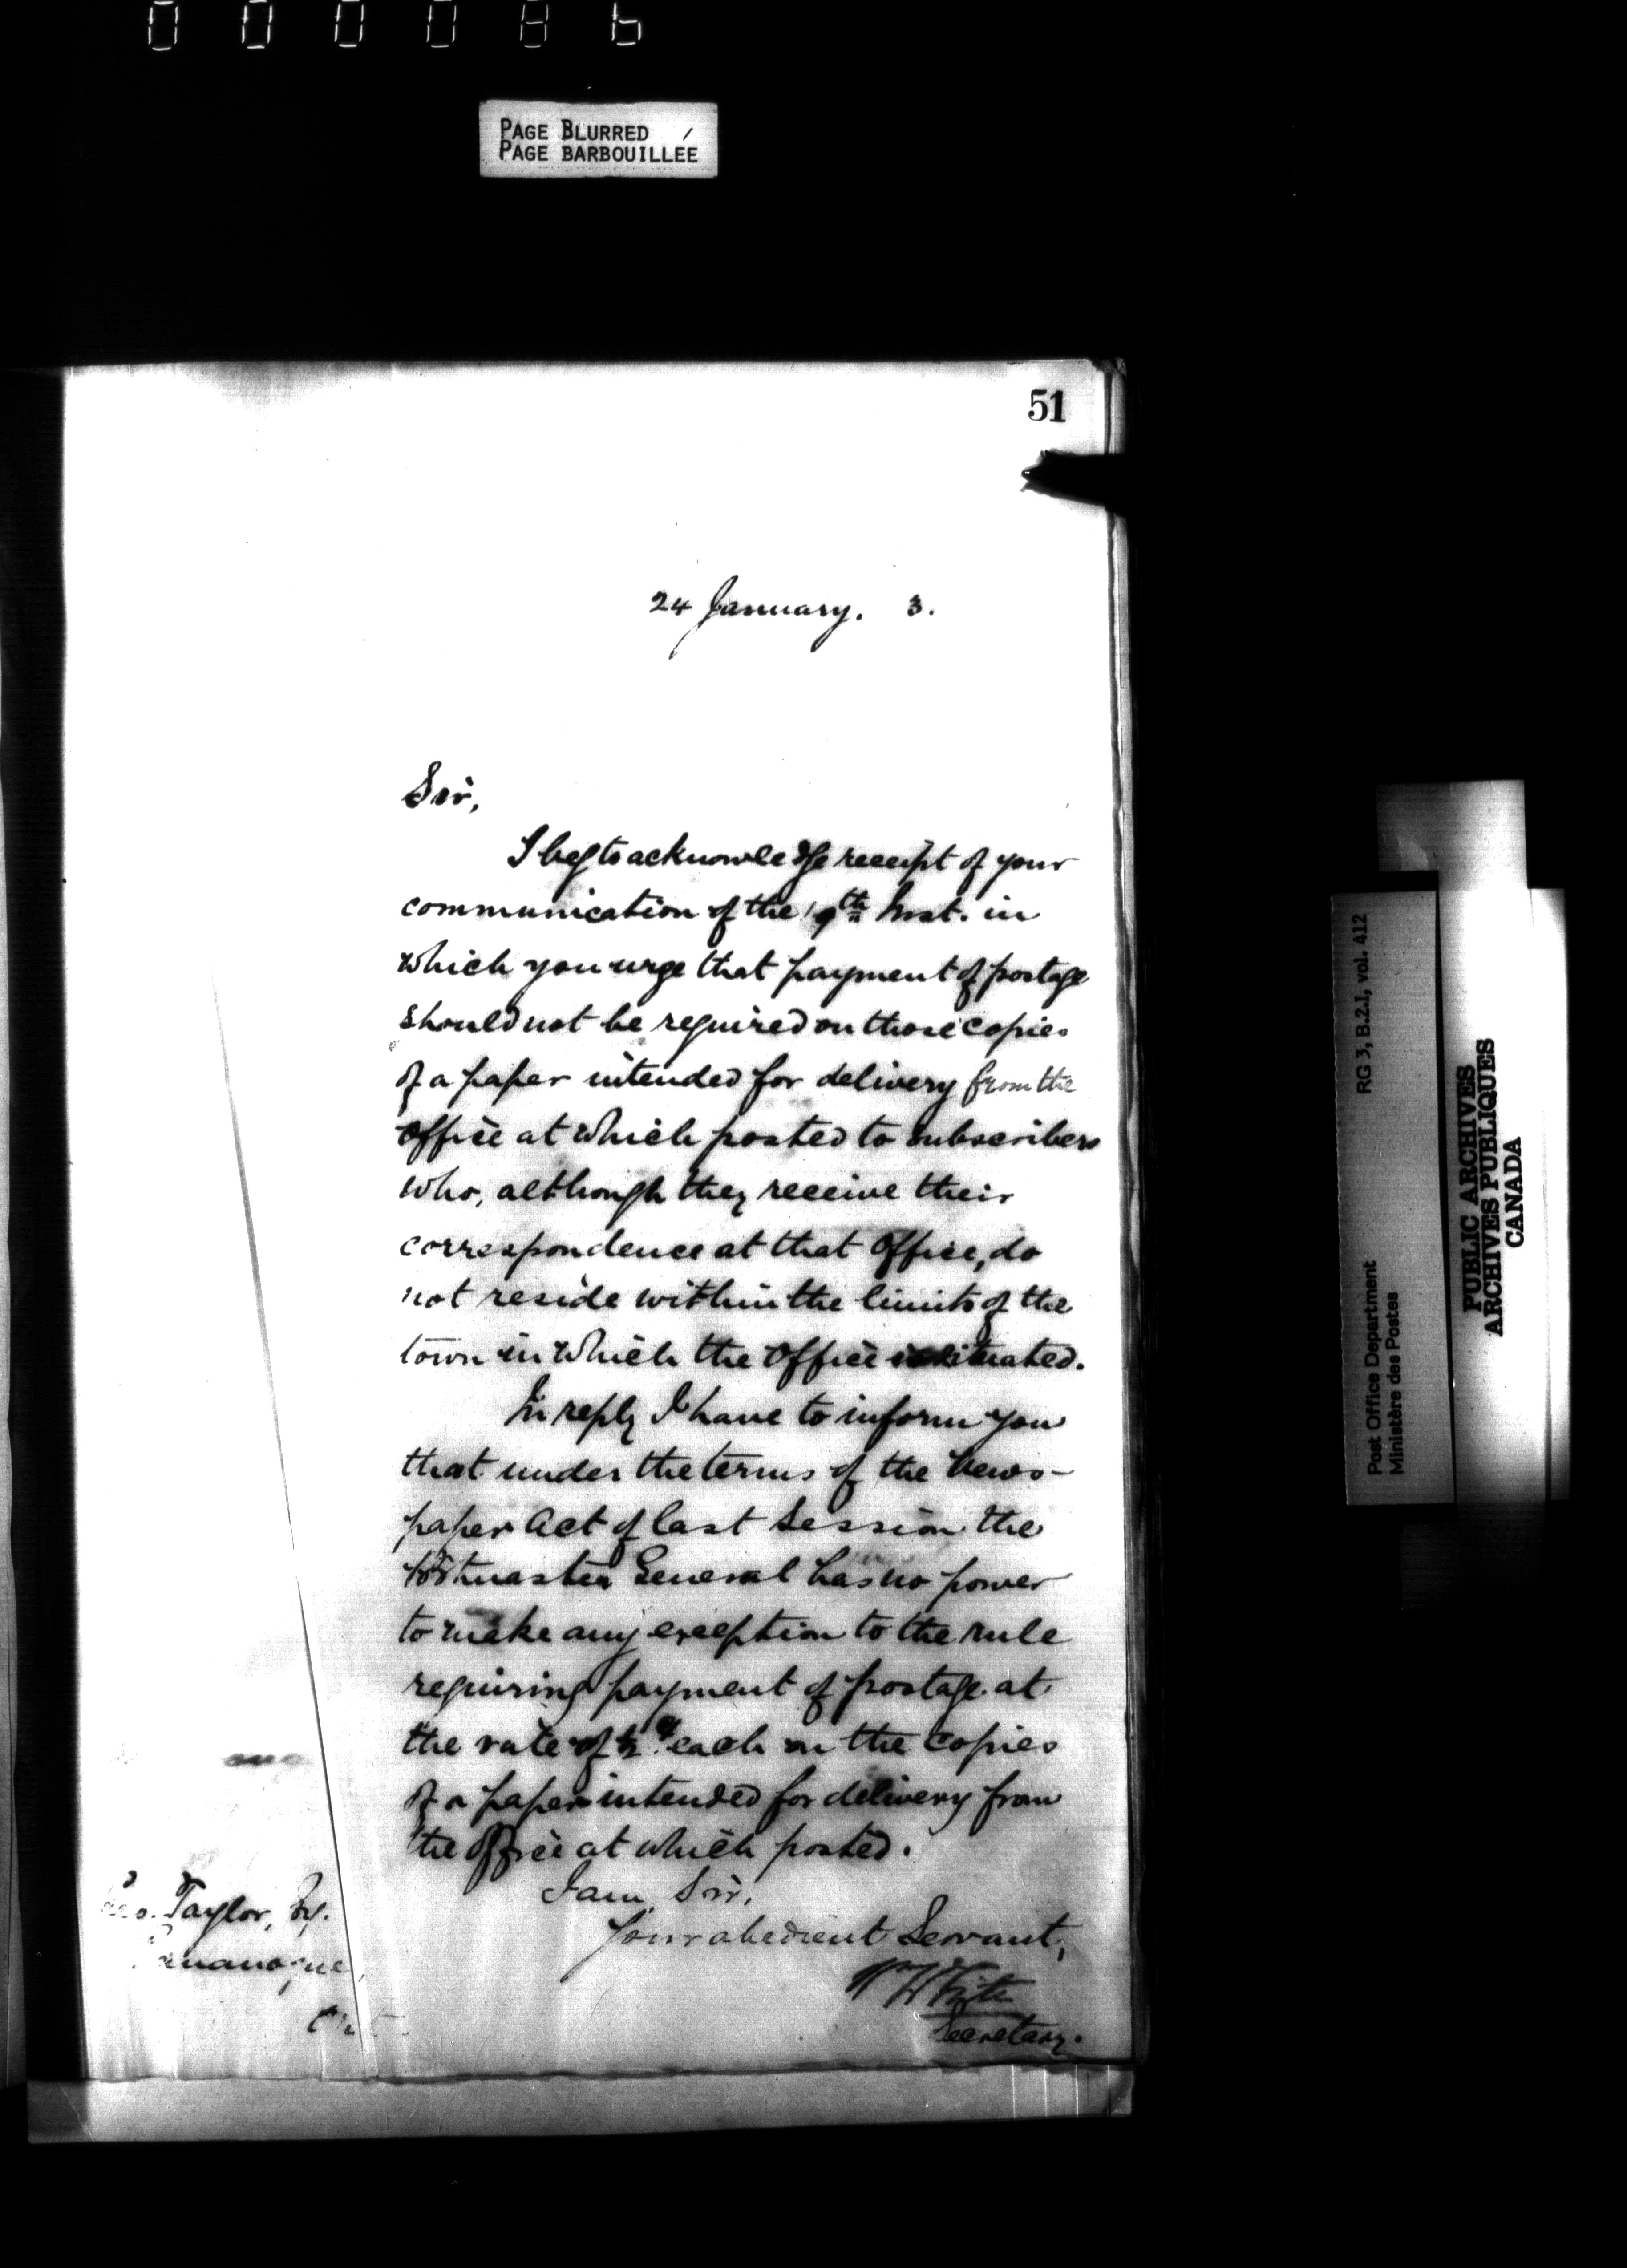 000086
PAGE BLURRED
PAGE BARBOUILLÉE
51
24 January. 3.
Sir,
I beg to acknowledge receipt of your
communication of the 19th Inst. in
which you urge that payment of postage
should not be required on those copies
of a paper intended for delivery from the
Office at which posted to subscribers
who, although they receive their
correspondence at that Office, do
not reside within the limits of the
town in which the Office is situated.
In reply I have to inform you
that under the terms of the News-
paper Act of last Session the
Postmaster General has no power
to make any exception to the rule
requiring payment of postage at
the rate of ½ each on the copies
of a paper intended for delivery from
the Office at which posted.
I am, Sir,
Your obedient Servant,
W White
Secretary.
Geo. Taylor, Esq.
Gananoque,
Ont
RG 3, B.2.1, vol. 412
Post Office Department
Ministère des Postes
PUBLIC ARCHIVES
ARCHIVES PUBLIQUES
CANADA